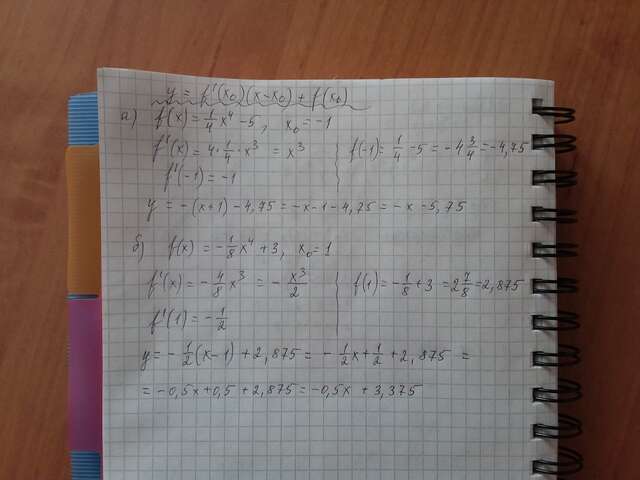 y = f'(x₀)(x-x₀) + f(x₀)
а) f(x) = 1/4 x⁴ - 5, x₀ = -1
f'(x) = 4 · 1/4 · x³ = x³
f'(-1) = -1
f(-1) = 1/4 - 5 = -4 3/4 = -4,75
y = -(x+1) - 4,75 = -x - 1 - 4,75 = -x - 5,75
б) f(x) = -1/8 x⁴ + 3, x₀ = 1
f'(x) = -4/8 x³ = -x³/2
f'(1) = -1/2
f(1) = -1/8 + 3 = 2 7/8 = 2,875
y = -1/2(x-1) + 2,875 = -1/2 x + 1/2 + 2,875 =
= -0,5x + 0,5 + 2,875 = -0,5x + 3,375